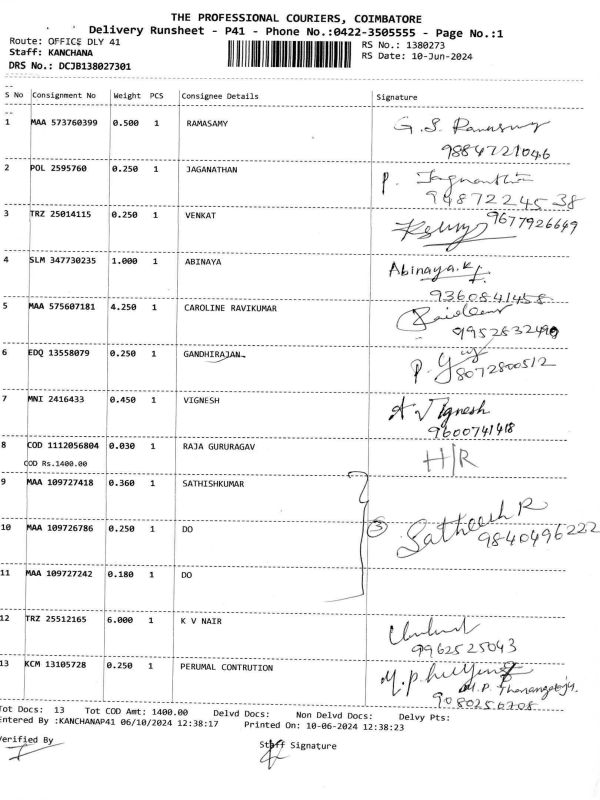 THE PROFESSIONAL COURIERS, COIMBATORE
Delivery Runsheet - P41 - Phone No.:0422-3505555 - Page No.:1
Route: OFFICE DLY 41
RS No.: 1380273
Staff: KANCHANA
RS Date: 10-Jun-2024
DRS No.: DCJB138027301
S No Consignment No Weight PCS Consignee Details Signature
1 MAA 573760399 0.500 1 RAMASAMY G. S. Ramasamy
9884721046
2 POL 2595760 0.250 1 JAGANATHAN P. Jagnanathan
9487224538
3 TRZ 25014115 0.250 1 VENKAT 9677926649
4 SLM 347730235 1.000 1 ABINAYA Abinaya.K
9360841458
5 MAA 575607181 4.250 1 CAROLINE RAVIKUMAR
9952832490
6 EDQ 13558079 0.250 1 GANDHIRAJAN P.
8072800512
7 MNI 2416433 0.450 1 VIGNESH A Vignesh
9600741418
8 COD 1112056804 0.030 1 RAJA GURURAGAV H/R
COD Rs.1400.00
9 MAA 109727418 0.360 1 SATHISHKUMAR
10 MAA 109726786 0.250 1 DO 3 Satheesh R
9840496222
11 MAA 109727242 0.180 1 DO
12 TRZ 25512165 6.000 1 K V NAIR
9962525043
13 KCM 13105728 0.250 1 PERUMAL CONTRUTION
M.P.
9080256708
Tot Docs: 13 Tot COD Amt: 1400.00 Delvd Docs: Non Delvd Docs: Delvy Pts:
Entered By :KANCHANAP41 06/10/2024 12:38:17 Printed On: 10-06-2024 12:38:23
Verified By Staff Signature